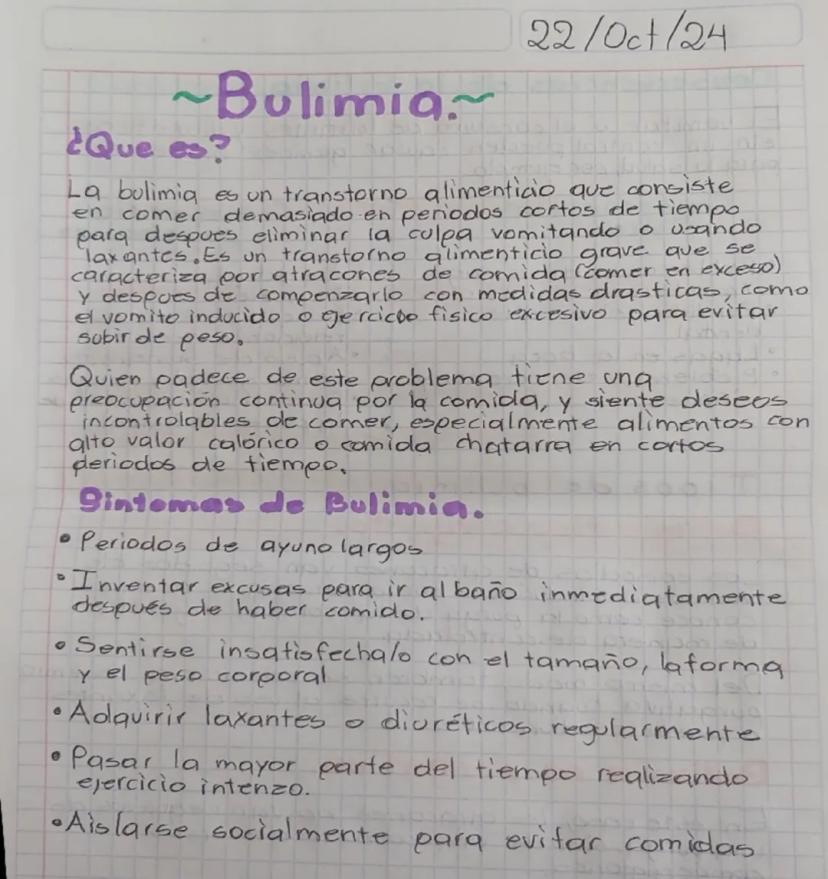 22/Oct/24
~Bulimia.~
¿Que es?
La bulimia es un transtorno alimenticio que consiste
en comer demasiado en periodos cortos de tiempo
para despues eliminar la culpa vomitando o usando
laxantes. Es un transtorno alimenticio grave que se
caracteriza por atracones de comida (comer en exceso)
y despues de compenzarlo con medidas drasticas, como
el vomito inducido o ejercicio fisico excesivo para evitar
subir de peso.
Quien padece de este problema tiene una
preocupación continua por la comida, y siente deseos
incontrolables de comer, especialmente alimentos con
alto valor calórico o comida chatarra en cortos
periodos de tiempo.
Sintomas de Bulimia.
• Periodos de ayuno largos
• Inventar excusas para ir al baño inmediatamente
después de haber comido.
• Sentirse insatisfecha/o con el tamaño, la forma
y el peso corporal
• Adquirir laxantes o diuréticos regularmente
• Pasar la mayor parte del tiempo realizando
ejercicio intenzo.
• Aislarse socialmente para evitar comidas